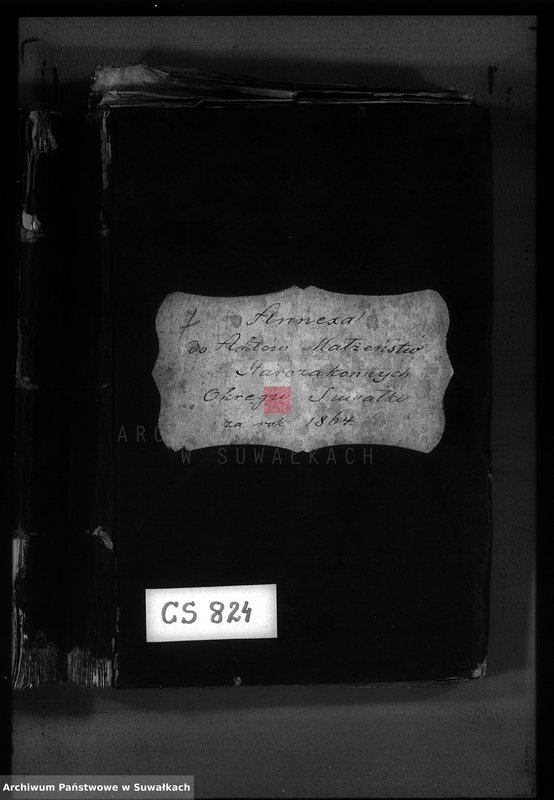 7 Annexa
do Aktów Małżeństw
Starozakonnych
Okręgu Suwałki
za rok 1864
ARCHIWUM PAŃSTWOWE
W SUWAŁKACH
CS 824
Archiwum Państwowe w Suwałkach